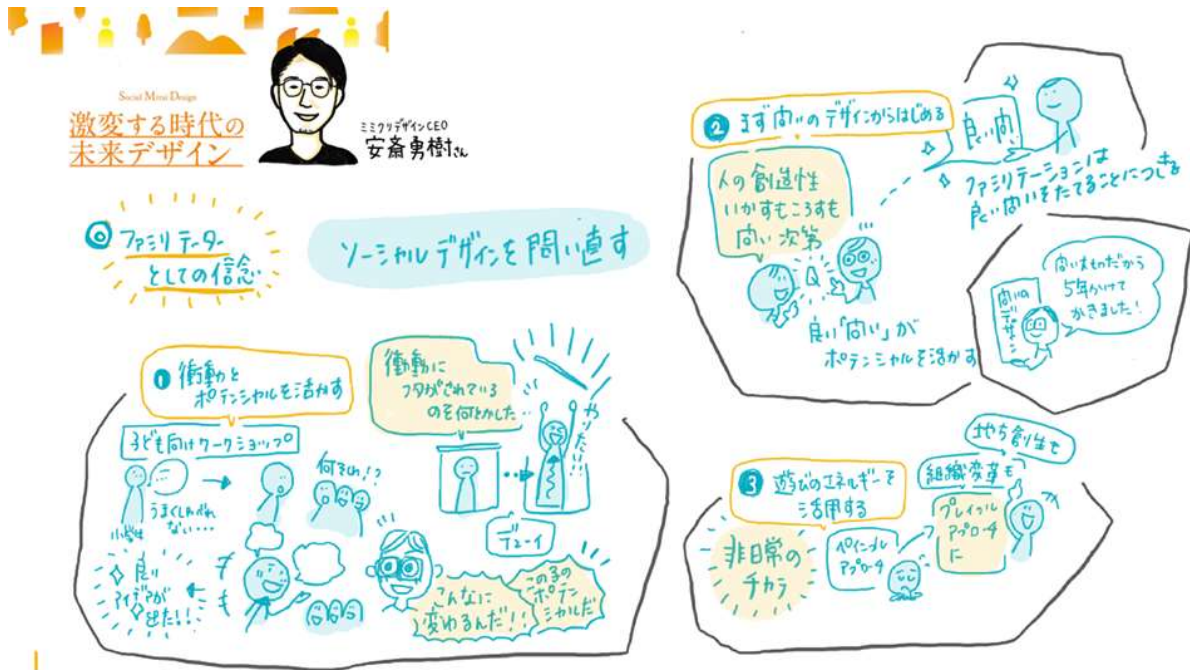 Social Mirai Design
激変する時代の
未来デザイン
ミミクリデザインCEO
安斎勇樹さん
⓪ ファシリテーター
としての信念
ソーシャルデザインを問い直す
① 衝動と
ポテンシャルを活かす
子ども向けワークショップ
うまくしゃべれ
ない・・・
何それ!?
良い
アイデアが
出た!!
こんなに
変わるんだ!!
この子の
ポテン
シャルだ
衝動に
フタがされている
のを何とかしたい
やりたい!!
デューイ
② まず問いのデザインからはじめる
人の創造性
いかすもころすも
問い次第
Q
良い「問い」が
ポテンシャルを活かす
良い問い
ファシリテーションは
良い問いをたてることにつきる
問いの
デザイン
5年かけて
かきました!
③ 遊びのエネルギーを
活用する
非日常の
チカラ
ペインフル
アプローチ
プレイフル
アプローチ
に
組織変革も
地方創生も